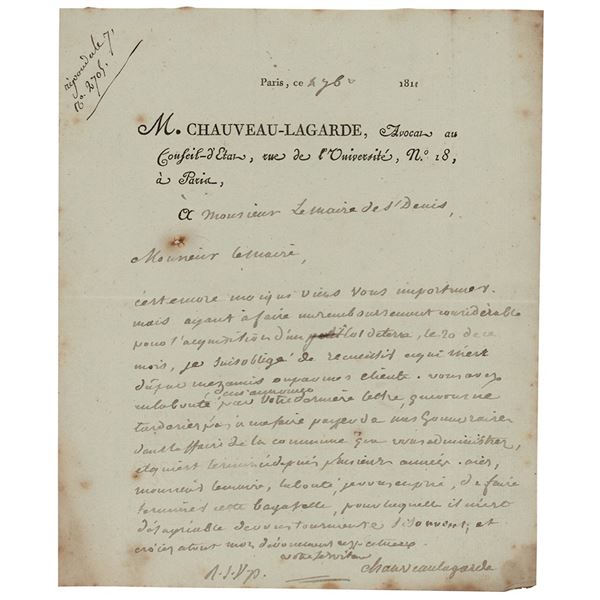 répondu le 7.
No. 2705.
Paris, ce 2 7bre 1811
M. CHAUVEAU-LAGARDE, Avocat au
Conseil-d'Etat, rue de l'Université, N.º 18,
à Paris,
A Monsieur Le maire de St Denis,
Monsieur le maire,
c'est encore moi qui viens vous importuner.
mais ayant à faire un remboursement considérable
pour l'acquisition d'un lot de terre, le 20 de ce
mois, je suis obligé de recueillir ce qui m'est
dû par mes amis ou par mes clients. vous avez
eu la bonté par votre dernière lettre, que vous ne
de m'annoncer
tarderiez pas à me faire payer de mes honoraires
dans l'affaire de la commune que vous administrez,
et qui est terminée depuis plusieurs années. ayez,
monsieur le maire, la bonté, je vous en prie, de faire
terminer cette bagatelle, pour laquelle il m'est
désagréable de vous tourmenter si souvent, et
croiez à tout mon dévouement
votre serviteur
R.S.V.P. chauveau lagarde